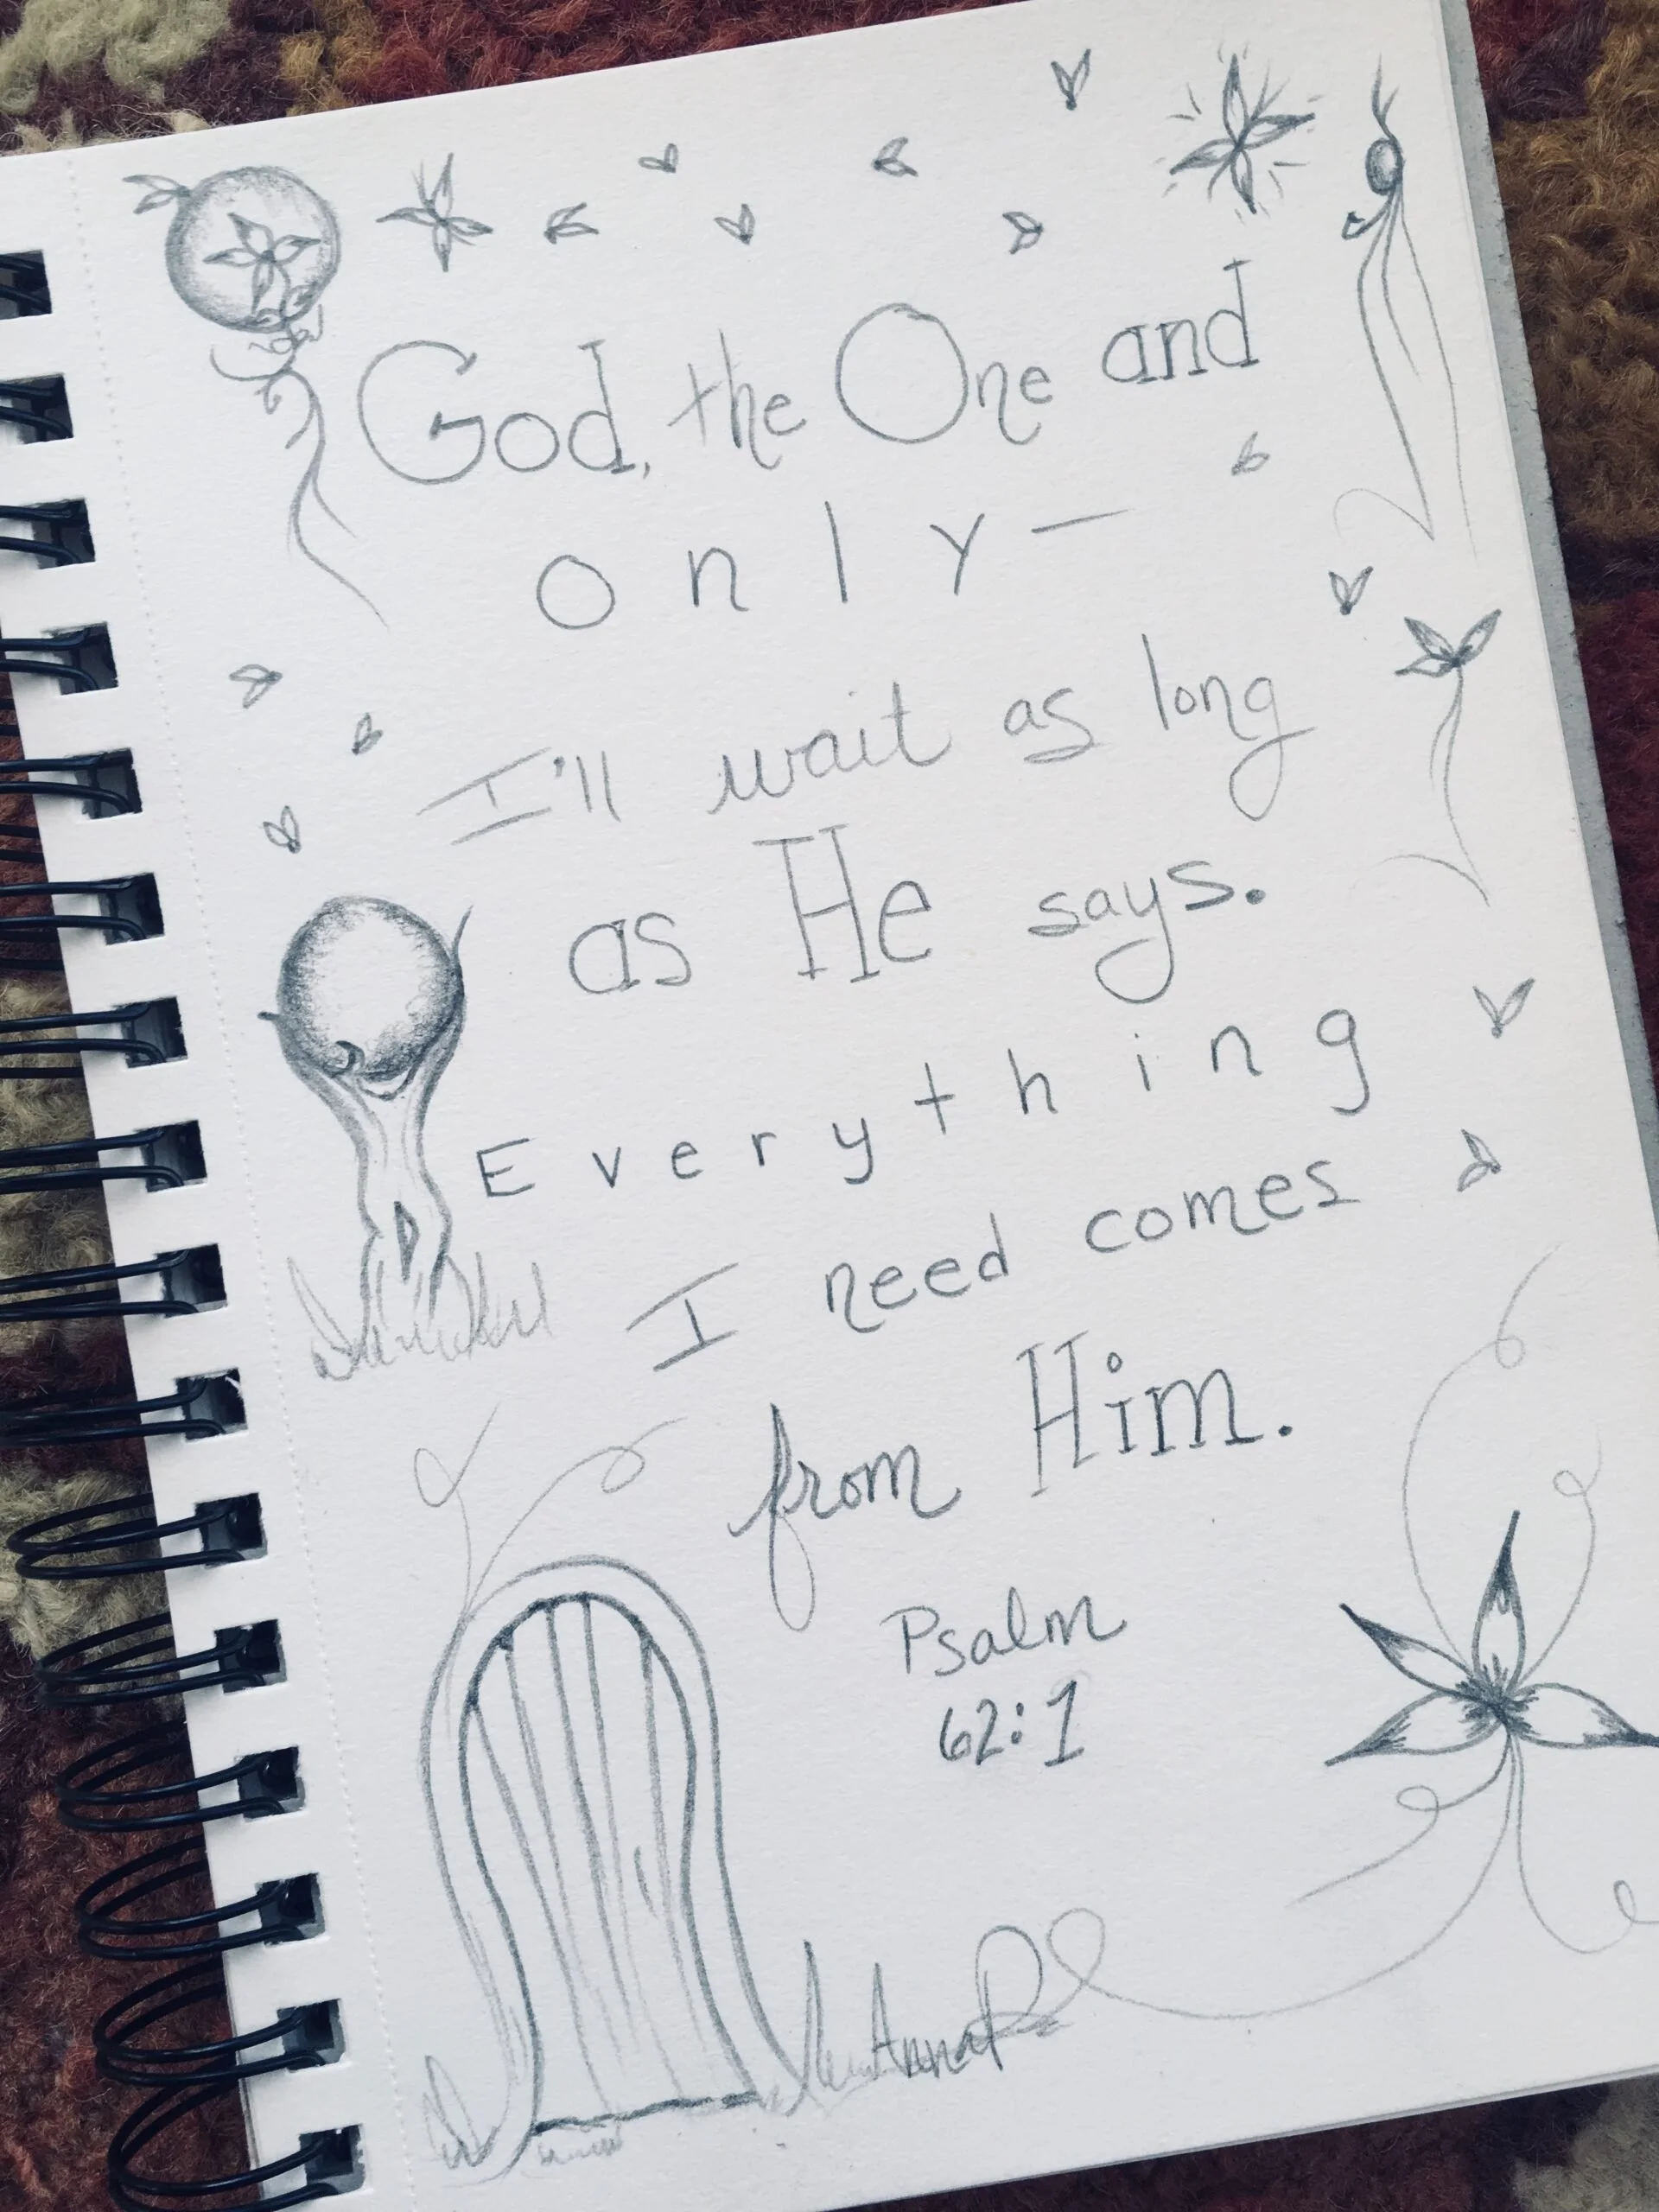 God, the One and
only—
I'll wait as long
as He says.
Everything
I need comes
from Him.
Psalm
62:1
AnnaP